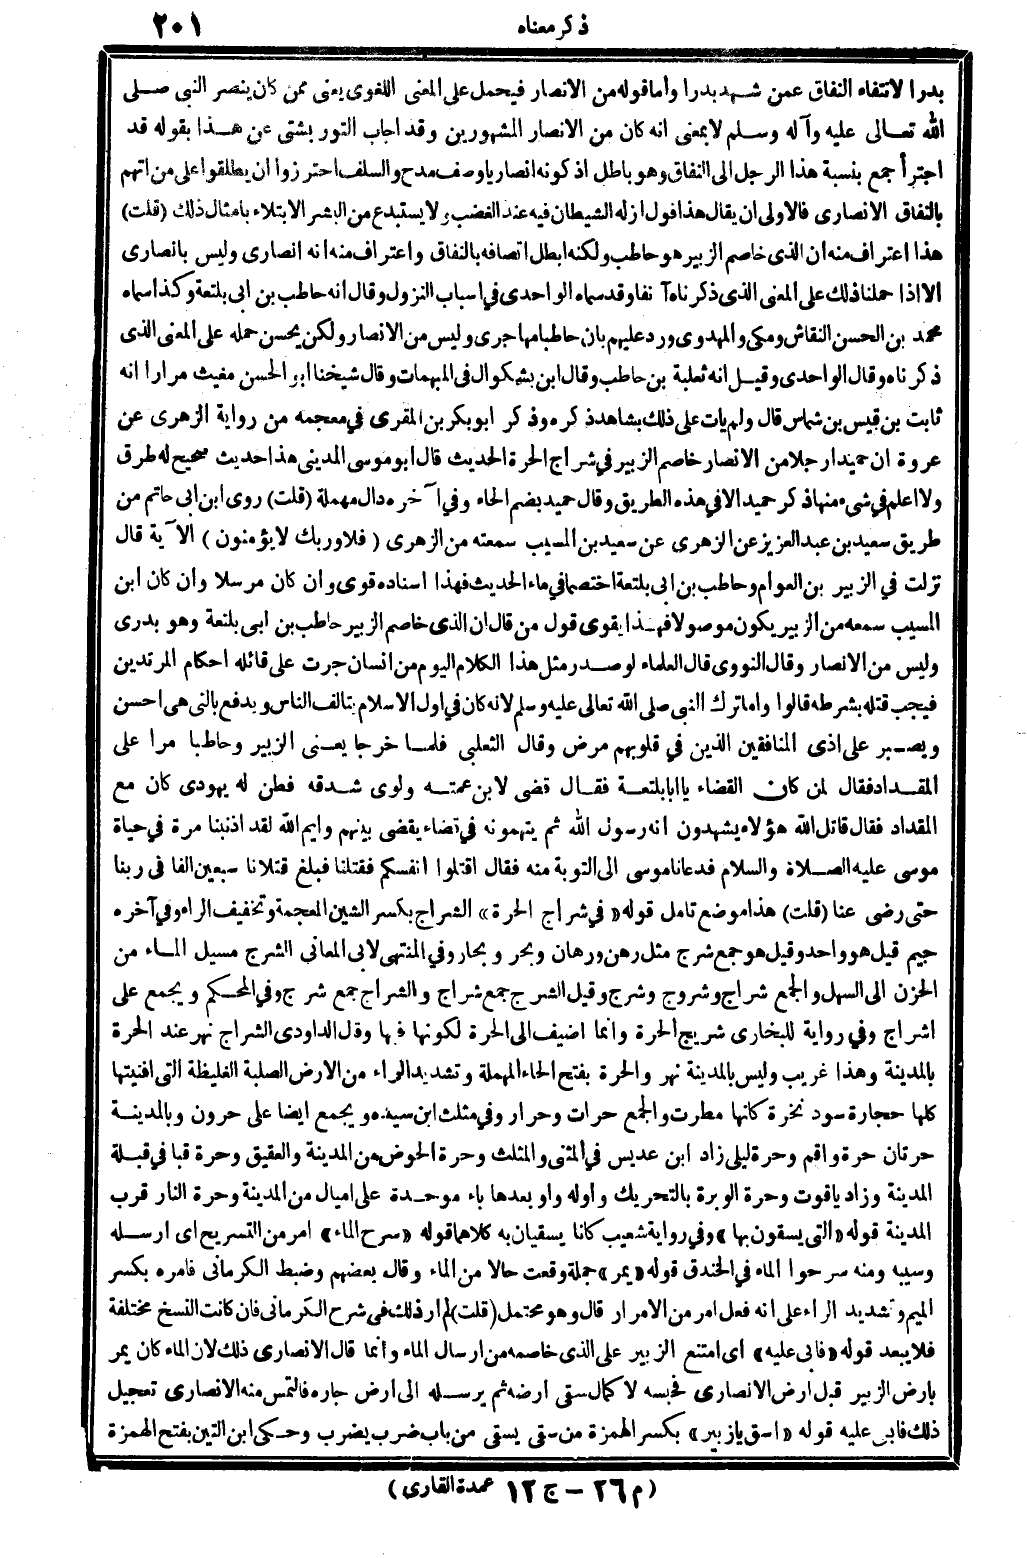 ذكر معناه
٢٠١
بدرا لانتفاء النفاق عمن شهد بدرا وأما قوله من الانصار فيحمل على المعنى اللغوى يعنى ممن كان ينصر النبى صلى
الله تعالى عليه وآله وسلم لا بمعنى انه كان من الانصار المشهورين وقد اجاب التوربشتى عن هذا بقوله قد
اجترأ جمع بنسبة هذا الرجل الى النفاق وهو باطل اذ كونه انصاريا وصف مدح والسلف احترزوا ان يطلقوا على من اتهم
بالنفاق الانصارى فالاولى ان يقال هذا قول ازله الشيطان فيه عند الغضب ولا يستبدع من البشر الابتلاء بامثال ذلك (قلت)
هذا اعتراف منه ان الذى خاصم الزبير هو حاطب ولكنه ابطل اتصافه بالنفاق واعتراف منه انه انصارى وليس بانصارى
الا اذا حملنا ذلك على المعنى الذى ذكرناه آنفا وقد سماه الواحدى في اسباب النزول وقال انه حاطب بن ابى بلتعة وكذا سماه
محمد بن الحسن النقاش ومكى والمهدوى ورد عليهم بان حاطبا مهاجرى وليس من الانصار ولكن يحسن حمله على المعنى الذى
ذكرناه وقال الواحدى وقيل انه ثعلبة بن حاطب وقال ابن بشكوال فى المبهمات وقال شيخنا ابو الحسن مغيث مرارا انه
ثابت بن قيس بن شماس قال ولم يات على ذلك بشاهد ذكره وذكر ابو بكر بن المقرى في معجمه من رواية الزهرى عن
عروة ان حميدا رجلا من الانصار خاصم الزبير في شراج الحرة الحديث قال ابو موسى المدينى هذا حديث صحيح له طرق
ولا اعلم في شىء منها ذكر حميد الا في هذه الطريق وقال حميد بضم الحاء وفي آخره دال مهملة (قلت) روى ابن ابى حاتم من
طريق سعيد بن عبد العزيز عن الزهرى عن سعيد بن المسيب سمعته من الزهرى (فلا وربك لا يؤمنون) الآية قال
نزلت في الزبير بن العوام وحاطب بن ابى بلتعة اختصما في ماء الحديث فهذا اسناده قوى وان كان مرسلا وان كان ابن
المسيب سمعه من الزبير يكون موصولا فهذا يقوى قول من قال ان الذى خاصم الزبير حاطب بن ابى بلتعة وهو بدرى
وليس من الانصار وقال النووى قال العلماء لو صدر مثل هذا الكلام اليوم من انسان جرت على قائله احكام المرتدين
فيجب قتله بشرطه قالوا واما ترك النبى صلى الله تعالى عليه وسلم لانه كان في اول الاسلام يتالف الناس ويدفع بالتى هى احسن
ويصبر على اذى المنافقين الذين في قلوبهم مرض وقال الثعلبى فلما خرجا يعنى الزبير وحاطبا مرا على
المقداد فقال لمن كان القضاء يا ابا بلتعة فقال قضى لابن عمته ولوى شدقه فطن له يهودى كان مع
المقداد فقال قاتل الله هؤلاء يشهدون انه رسول الله ثم يتهمونه في قضاء يقضى بينهم وايم الله لقد اذنبنا مرة في حياة
موسى عليه الصلاة والسلام فدعانا موسى الى التوبة منه فقال اقتلوا انفسكم فقتلنا فبلغ قتلانا سبعين الفا فى ربنا
حتى رضى عنا (قلت) هذا موضع تامل قوله «في شراج الحرة» الشراج بكسر الشين المعجمة وتخفيف الراء وفي آخره
جيم قيل هو واحد وقيل هو جمع شرج مثل رهن ورهان وبحر وبحار وفي المنتهى لابى المعانى الشرج مسيل الماء من
الحزن الى السهل والجمع شراج وشروج وشرج وقيل الشرج جمع شراج والشراج جمع شرج وفي المحكم ويجمع على
اشراج وفي رواية للبخارى شريج الحرة وانما اضيف الى الحرة لكونها فيها وقال الداودى الشراج نهر عند الحرة
بالمدينة وهذا غريب وليس بالمدينة نهر والحرة بفتح الحاء المهملة وتشديد الراء من الارض الصلبة الغليظة التى افنيتها
كلها حجارة سود نخرة كانها مطرت والجمع حرات وحرار وفي مثلث ابن سيده ويجمع ايضا على حرون وبالمدينة
حرتان حرة واقم وحرة ليلى زاد ابن عديس في المثنى والمثلث وحرة الحوض من المدينة والعقيق وحرة قبا في قبلة
المدينة وزاد ياقوت وحرة الوبرة بالتحريك واوله واو بعدها باء موحدة على اميال من المدينة وحرة النار قرب
المدينة قوله «التى يسقون بها» وفي رواية شعيب كانا يسقيان به كلاهما قوله «سرح الماء» امر من التسريح اى ارسله
وسيبه ومنه سرحوا الماء في الخندق قوله «يمر» جملة وقعت حالا من الماء وقال بعضهم وضبط الكرمانى فامره بكسر
الميم وتشديد الراء على انه فعل امر من الامرار قال وهو محتمل (قلت) لم ار ذلك فى شرح الكرمانى فان كانت النسخ مختلفة
فلا يبعد قوله «فابى عليه» اى امتنع الزبير على الذى خاصمه من ارسال الماء وانما قال الانصارى ذلك لان الماء كان يمر
بارض الزبير قبل ارض الانصارى فحبسه لاكمال سقى ارضه ثم يرسله الى ارض جاره فالتمس منه الانصارى تعجيل
ذلك فابى عليه قوله «اسق يا زبير» بكسر الهمزة من سقى يسقى من باب ضرب يضرب وحكى ابن التين بفتح الهمزة
(م ٢٦ – ج ١٢ عمدة القارى)